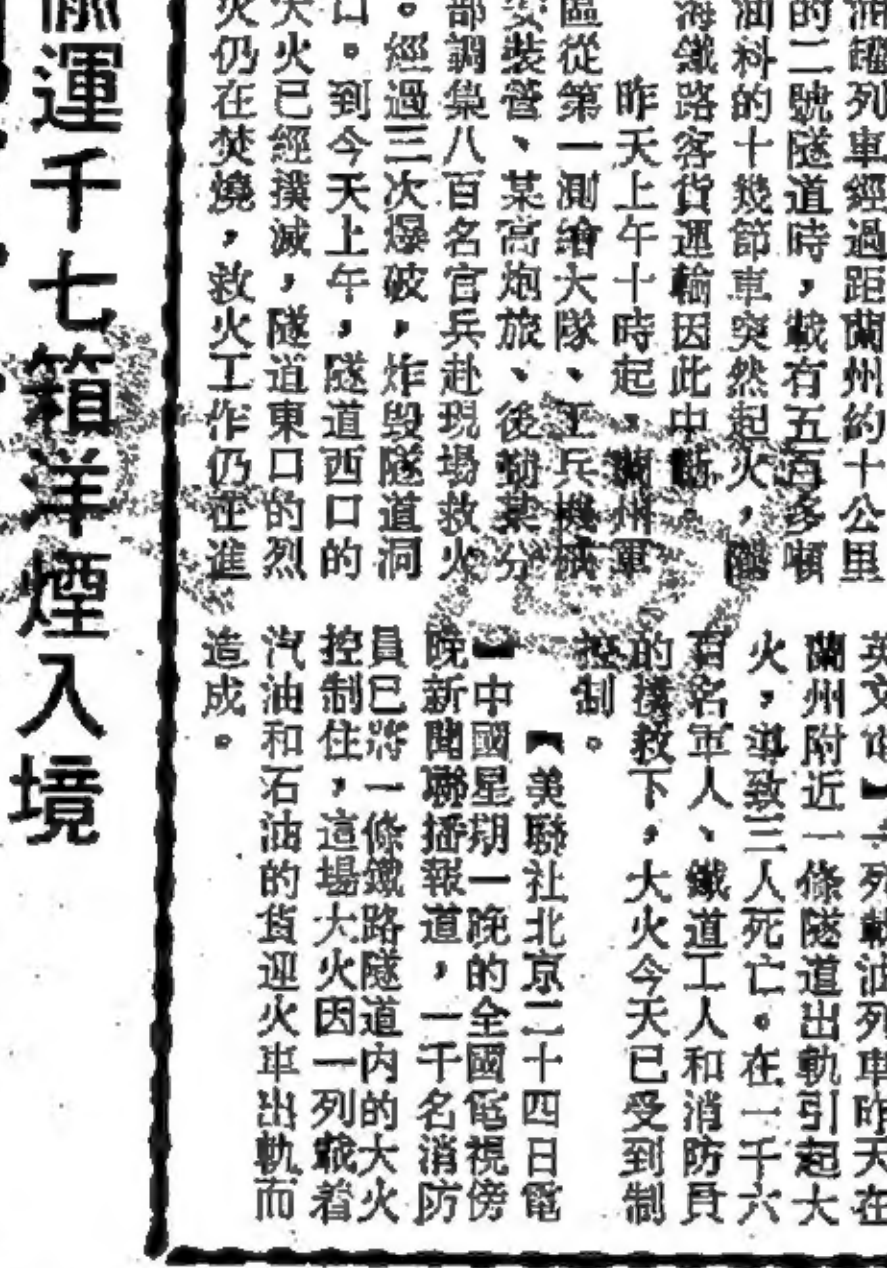 油罐列車經過距蘭州約十公里
的二號隧道時，載有五百多噸
油料的十幾節車突然起火，隴
海鐵路客貨運輸因此中斷。
昨天上午十時起，蘭州軍
區從第一測繪大隊、工兵機械
安裝營、某高炮旅、後勤某分
部調集八百名官兵赴現場救火
。經過三次爆破，炸毀隧道洞
口。到今天上午，隧道西口的
大火已經撲滅，隧道東口的烈
火仍在焚燒，救火工作仍在進
英文電】一列載油列車昨天在
蘭州附近一條隧道出軌引起大
火，導致三人死亡。在一千六
百名軍人、鐵道工人和消防員
的撲救下，大火今天已受到制
控制。
【美聯社北京二十四日電
】中國星期一晚的全國電視傍
晚新聞聯播報道，一千名消防
員已將一條鐵路隧道內的大火
控制住，這場大火因一列載着
汽油和石油的貨迎火車出軌而
造成。
偷運千七箱洋煙入境